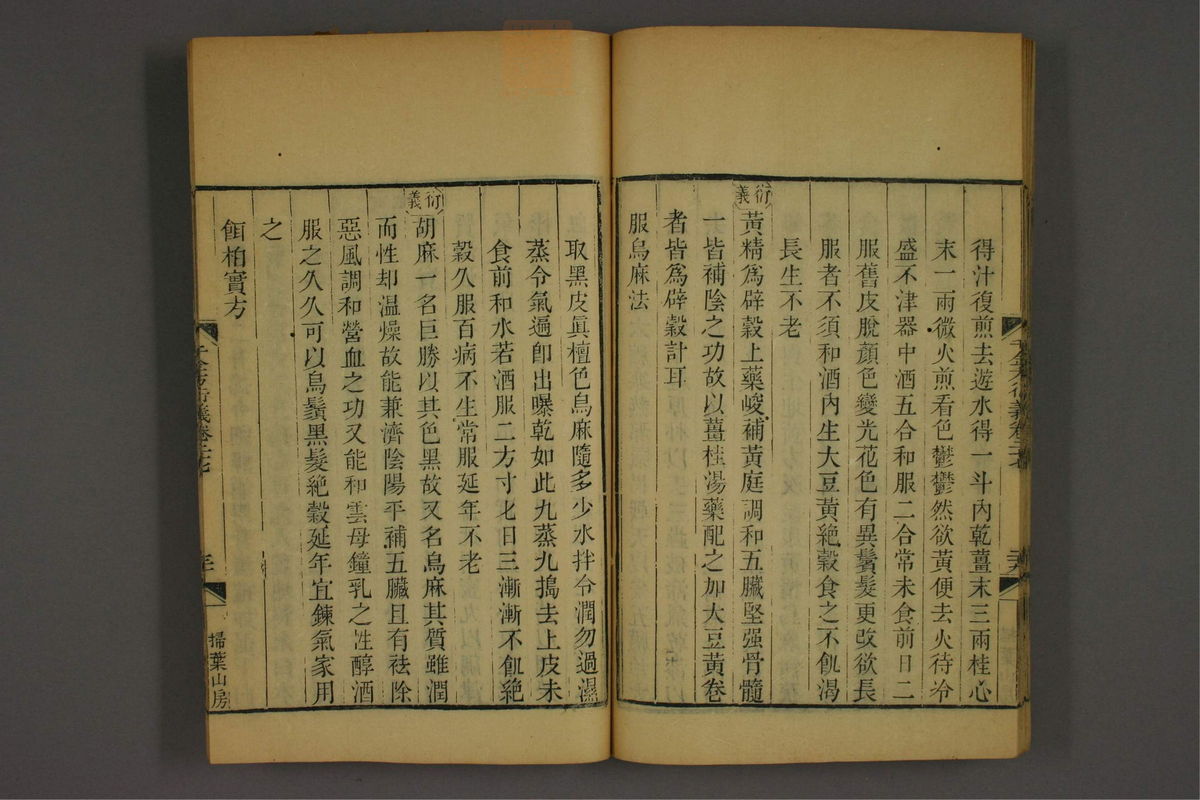 得汁復煎去遊水得一斗內乾薑末三兩桂心
末一兩微火煎看色鬱鬱然欲黃便去火待冷
盛不津器中酒五合和服二合常未食前日二
服舊皮脫顏色變光花色有異鬢髮更改欲長
服者不須和酒內生大豆黃絶穀食之不飢渴
長生不老
衍義
黃精爲辟穀上藥峻補黃庭調和五臟堅强骨髓
一皆補陰之功故以薑桂湯藥配之加大豆黃卷
者皆爲辟穀計耳
服烏麻法
取黑皮眞檀色烏麻隨多少水拌令潤勿過濕
蒸令氣遍卽出曝乾如此九蒸九搗去上皮未
食前和水若酒服二方寸匕日三漸漸不飢絶
穀久服百病不生常服延年不老
衍義
胡麻一名巨勝以其色黑故又名烏麻其質雖潤
而性却温燥故能兼濟陰陽平補五臟且有祛除
惡風調和營血之功又能和雲母鐘乳之性醇酒
服之久久可以烏鬚黑髮絶穀延年宜鍊氣家用
之
餌柏實方
千金方衍義卷二十七
掃葉山房